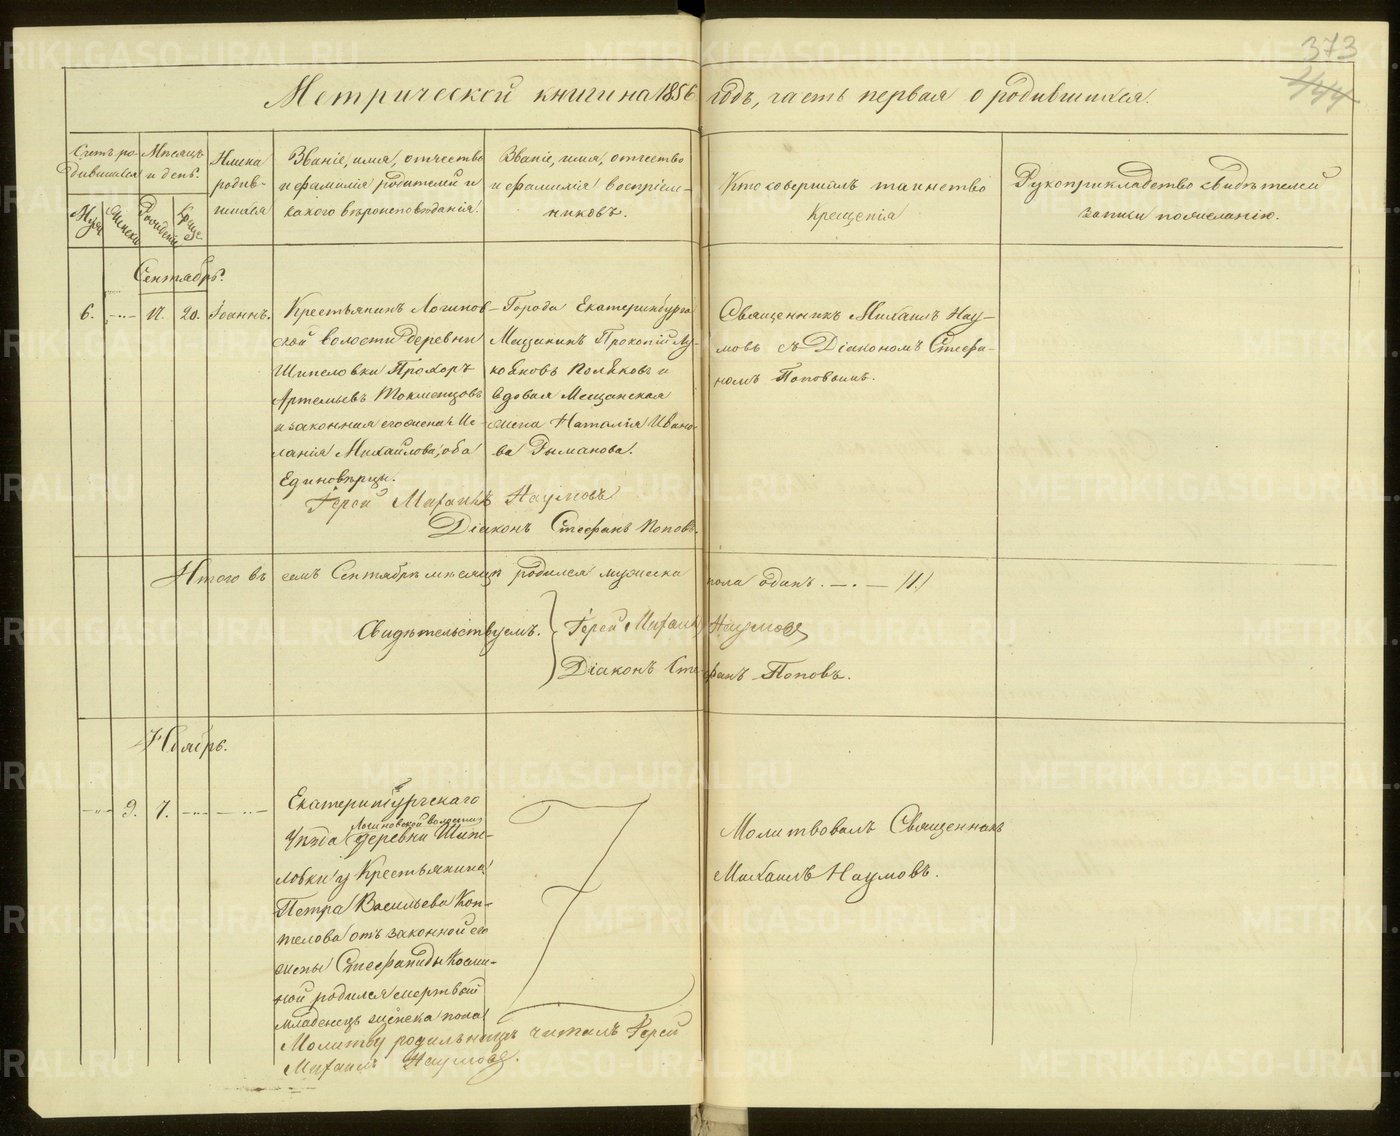 373
444
Метрической книги на 1856 годъ, часть первая о родившихся.
Счетъ ро-
дившихся
Мѣсяцъ
и день.
Имена
родив-
шихся
Званіе, имя, отчество
и фамилія родителей и
какого вѣроисповѣданія.
Званіе, имя, отчество
и фамилія воспріем-
никовъ.
Кто совершилъ таинство
Крещенія
Рукоприкладство свидѣтелей
записи по желанію.
Муж.
Женска
Рожденія
Крещ.
Сентябрь.
6. 17. 20. Іоаннъ.
Крестьянинъ Логинов-
ской волости деревни
Шипеловки Прохоръ
Артемьевъ Токменцовъ
и законная его жена Ме-
ланія Михайлова, оба
Единовѣрцы.
Города Екатеринбурга
Мещанинъ Прокопій Лу-
кояновъ Поляковъ и
вдовая Мещанская
жена Наталія Ивано-
ва Рыманова.
Священникъ Михаилъ Нау-
мовъ съ Діакономъ Стефа-
номъ Поповымъ.
Іерей Михаилъ Наумовъ
Діаконъ Стефанъ Поповъ.
Итого въ семъ Сентябрѣ мѣсяцѣ родился мужеска пола одинъ. — . — /1./
Свидѣтельствуемъ.
Іерей Михаилъ Наумовъ
Діаконъ Стефанъ Поповъ.
Ноябрь.
9. 7.
Екатеринбургскаго
Логиновской волости
Уѣзда деревни Шипе-
ловки у Крестьянина
Петра Васильева Коп-
телова отъ законной его
жены Стефаниды Косми-
ной родился мертвый
младенецъ женска пола
Молитву родильницѣ читалъ Іерей
Михаилъ Наумовъ.
Молитвовалъ Священникъ
Михаилъ Наумовъ.